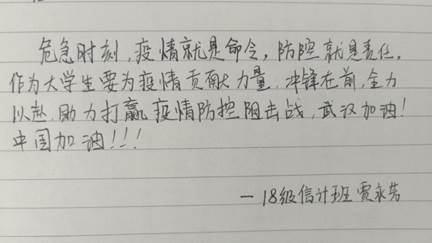 危急时刻,疫情就是命令,防控就是责任,
作为大学生要为疫情贡献力量,冲锋在前,全力
以赴,助力打赢疫情防控阻击战,武汉加油!
中国加油!!!
—18级信计班 贾永芳